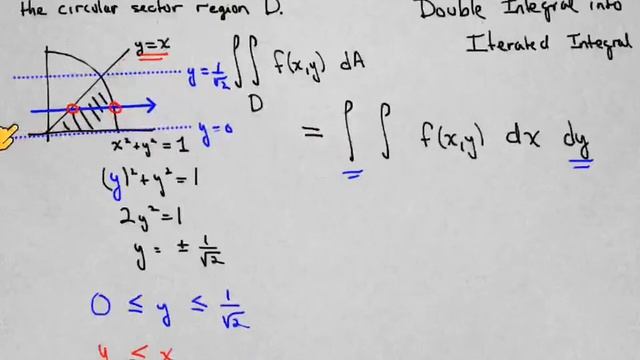 the circular sector region D.
Double Integral into
Iterated Integral
y=x
y=1/√2
∬ f(x,y) dA
D
y=0
= ∫ ∫ f(x,y) dx dy
x²+y²=1
(y)²+y²=1
2y²=1
y= ± 1/√2
0 ≤ y ≤ 1/√2
y ≤ x